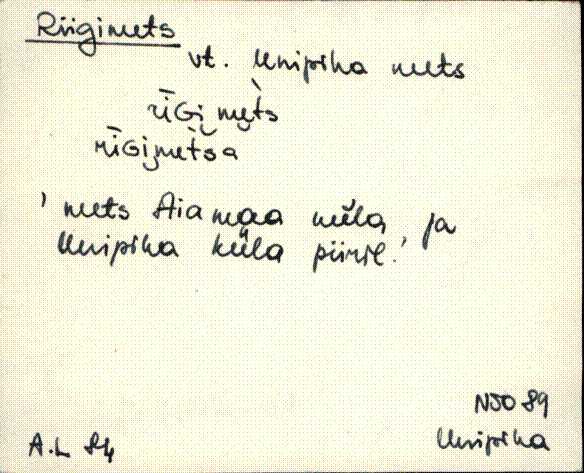 Riigimets
vt. Unipiha mets
rīGi mets
rīGimetsa
' mets Aiamaa küla, ja
Unipiha küla piiril.'
NJO 89
A.L 84 Unipiha